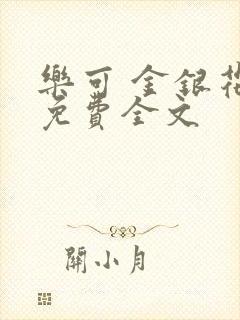 樂可 金銀花
免費全文
關小月